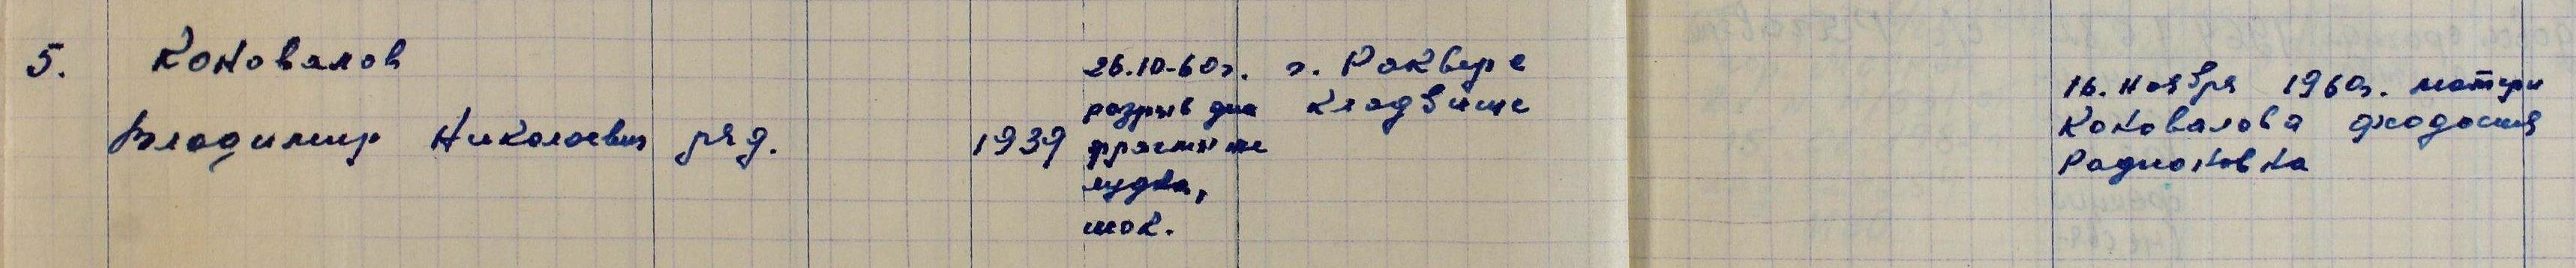 5. Коновалов
Владимир Николаевич ряд. 1939
26.10.60г.
разрыв диа
шок.
г. Раквере
кладбище
16. ноября 1960г. матери
Коновалова феодосия
Радионовна